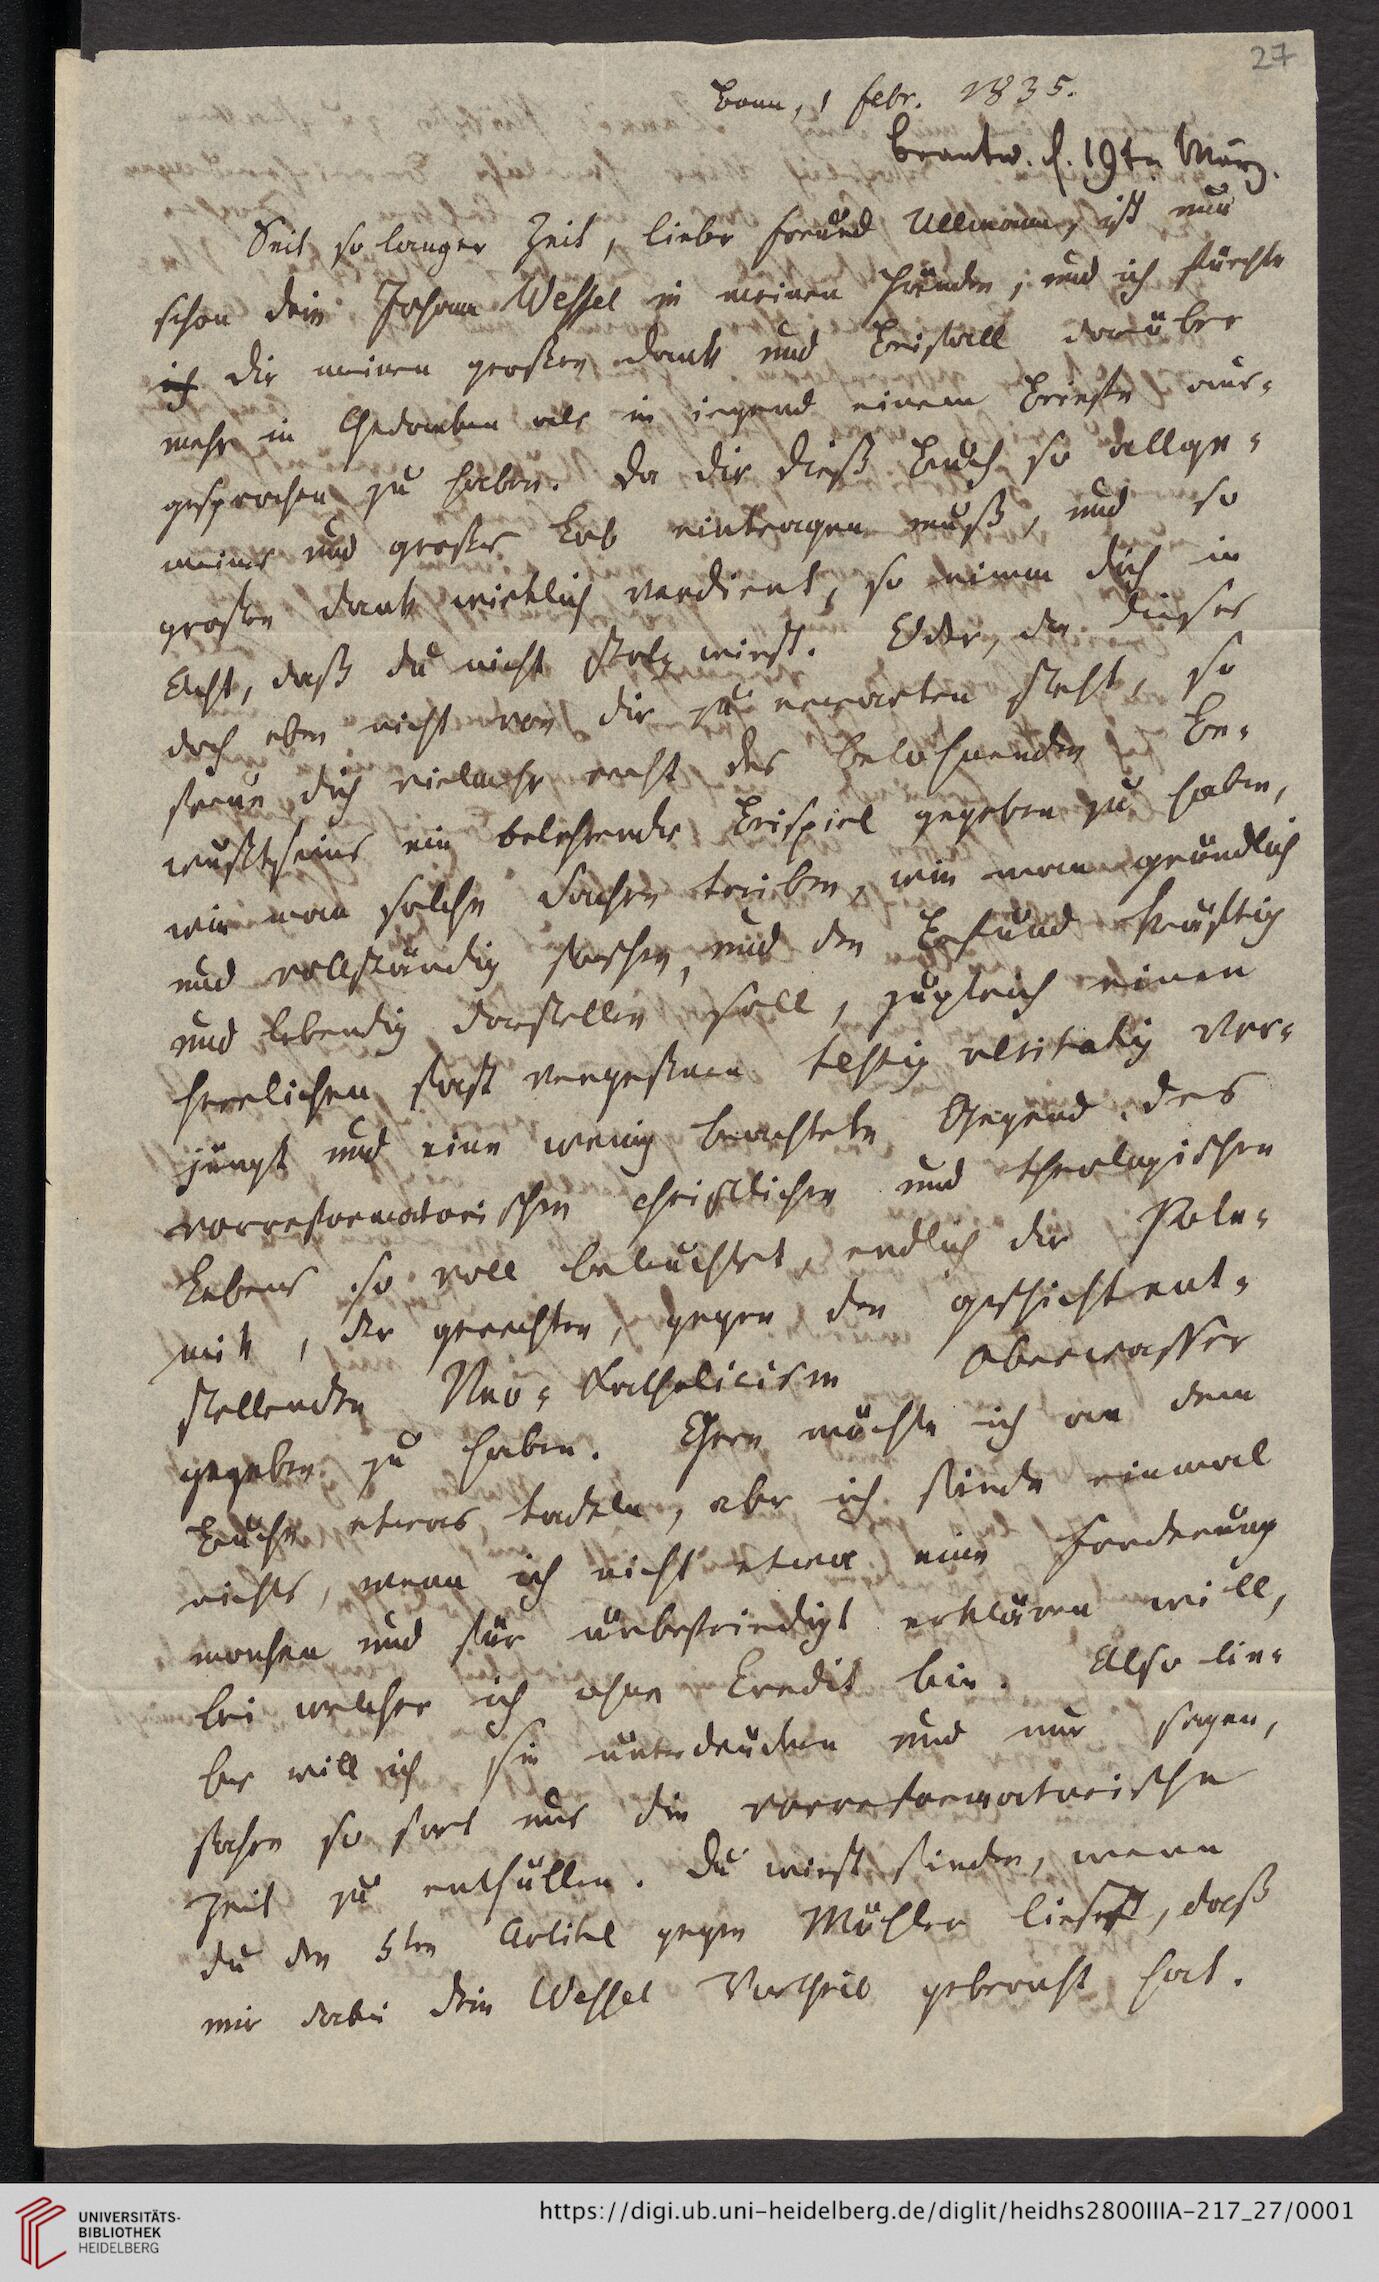 27
Bonn, 1 Febr. 1835.
Beantw. d. 19tn März.
Seit so langer Zeit, lieber Freund Ullmann, ist nun
schon dein Johann Wessel in meinen Händen, und ich fürchte
ich dir meinen großen Dank und Beifall darüber
mehr in Gedanken als in irgend einem Briefe aus-
gesprochen zu haben. Da dir dieß Buch so allge-
meines und großes Lob eintragen muß, und so
großen Dank wirklich verdient, so nimm dich in
Acht, daß du nicht stolz wirst. Oder, da dieses
doch eben nicht von dir zu erwarten steht, so
freue dich vielmehr recht des belohnenden Be-
wußtseins ein belehrendes Beispiel gegeben zu haben,
wie man solche Sachen treiben, wie man gründlich
und vollständig forschen, und den Befund kräftig
und lebendig darstellen soll, zugleich einen
herrlichen fast vergeßnen testis veritatis ver-
jüngt und eine wenig beachtete Gegend des
vorreformatorischen christlichen und theologischen
Lebens so voll beleuchtet, endlich der Pole-
mik, der gerechten, gegen den geschichtent-
stellenden Neo-Katholicism Oberwasser
gegeben zu haben. Gern möchte ich an dem
Buche etwas tadeln, aber ich finde einmal
nichts, wenn ich nicht etwa eine Forderung
machen und für unbefriedigt erklären will,
bei welcher ich ohne Credit bin. Also lie-
ber will ich sie unterdrücken und nur sagen,
fahre so fort uns die vorreformatorische
Zeit zu enthüllen. Du wirst finden, wenn
du den 5ten Artikel gegen Möhler liesest, daß
mir dabei dein Wessel Vortheil gebracht hat.
UNIVERSITÄTS-
BIBLIOTHEK
HEIDELBERG
https://digi.ub.uni-heidelberg.de/diglit/heidhs2800IIIA-217_27/0001